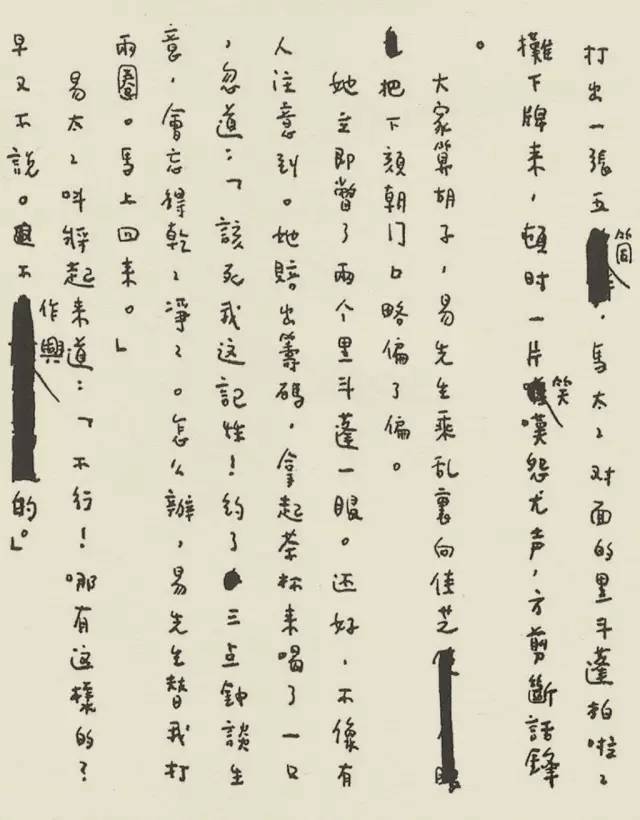 打出一張五筒，馬太々对面的黑斗蓬拍啦々
攤下牌来，頓时一片笑嘆怨尤声，方剪斷話鋒
。
大家算胡子，易先生乘乱裏向佳芝
把下頦朝门口略偏了偏。
她立即瞥了兩个黑斗蓬一眼。还好，不像有
人注意到。她賠出籌碼，拿起茶杯来喝了一口
，忽道：「該死我这記性！約了三点鐘談生
意，會忘得乾々淨々。怎么辦，易先生替我打
兩圈。馬上回来。」
易太々叫將起来道：「不行！哪有这樣的？
早又不說。不作興的。」